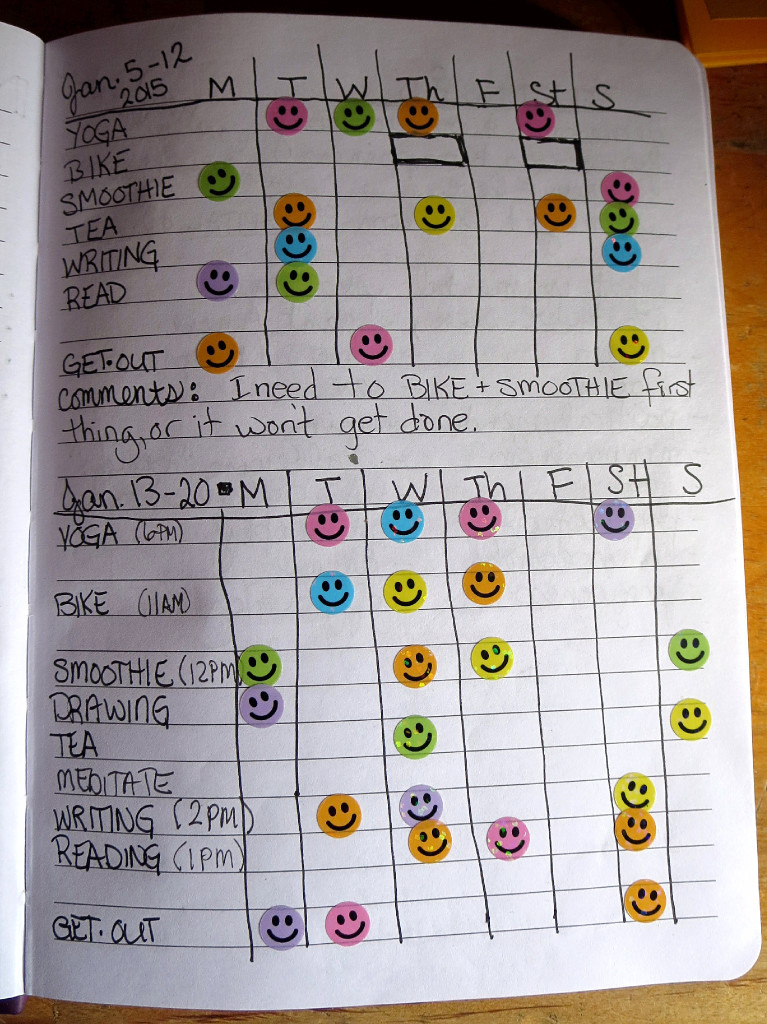 Jan. 5-12
2015 M T W Th F St S
YOGA
BIKE
SMOOTHIE
TEA
WRITING
READ
GET•OUT
comments: I need to BIKE + SMOOTHIE first
thing, or it won't get done.
Jan. 13-20 M T W Th F St S
YOGA (6PM)
BIKE (11AM)
SMOOTHIE (12PM)
DRAWING
TEA
MEDITATE
WRITING (2PM)
READING (1PM)
GET•OUT